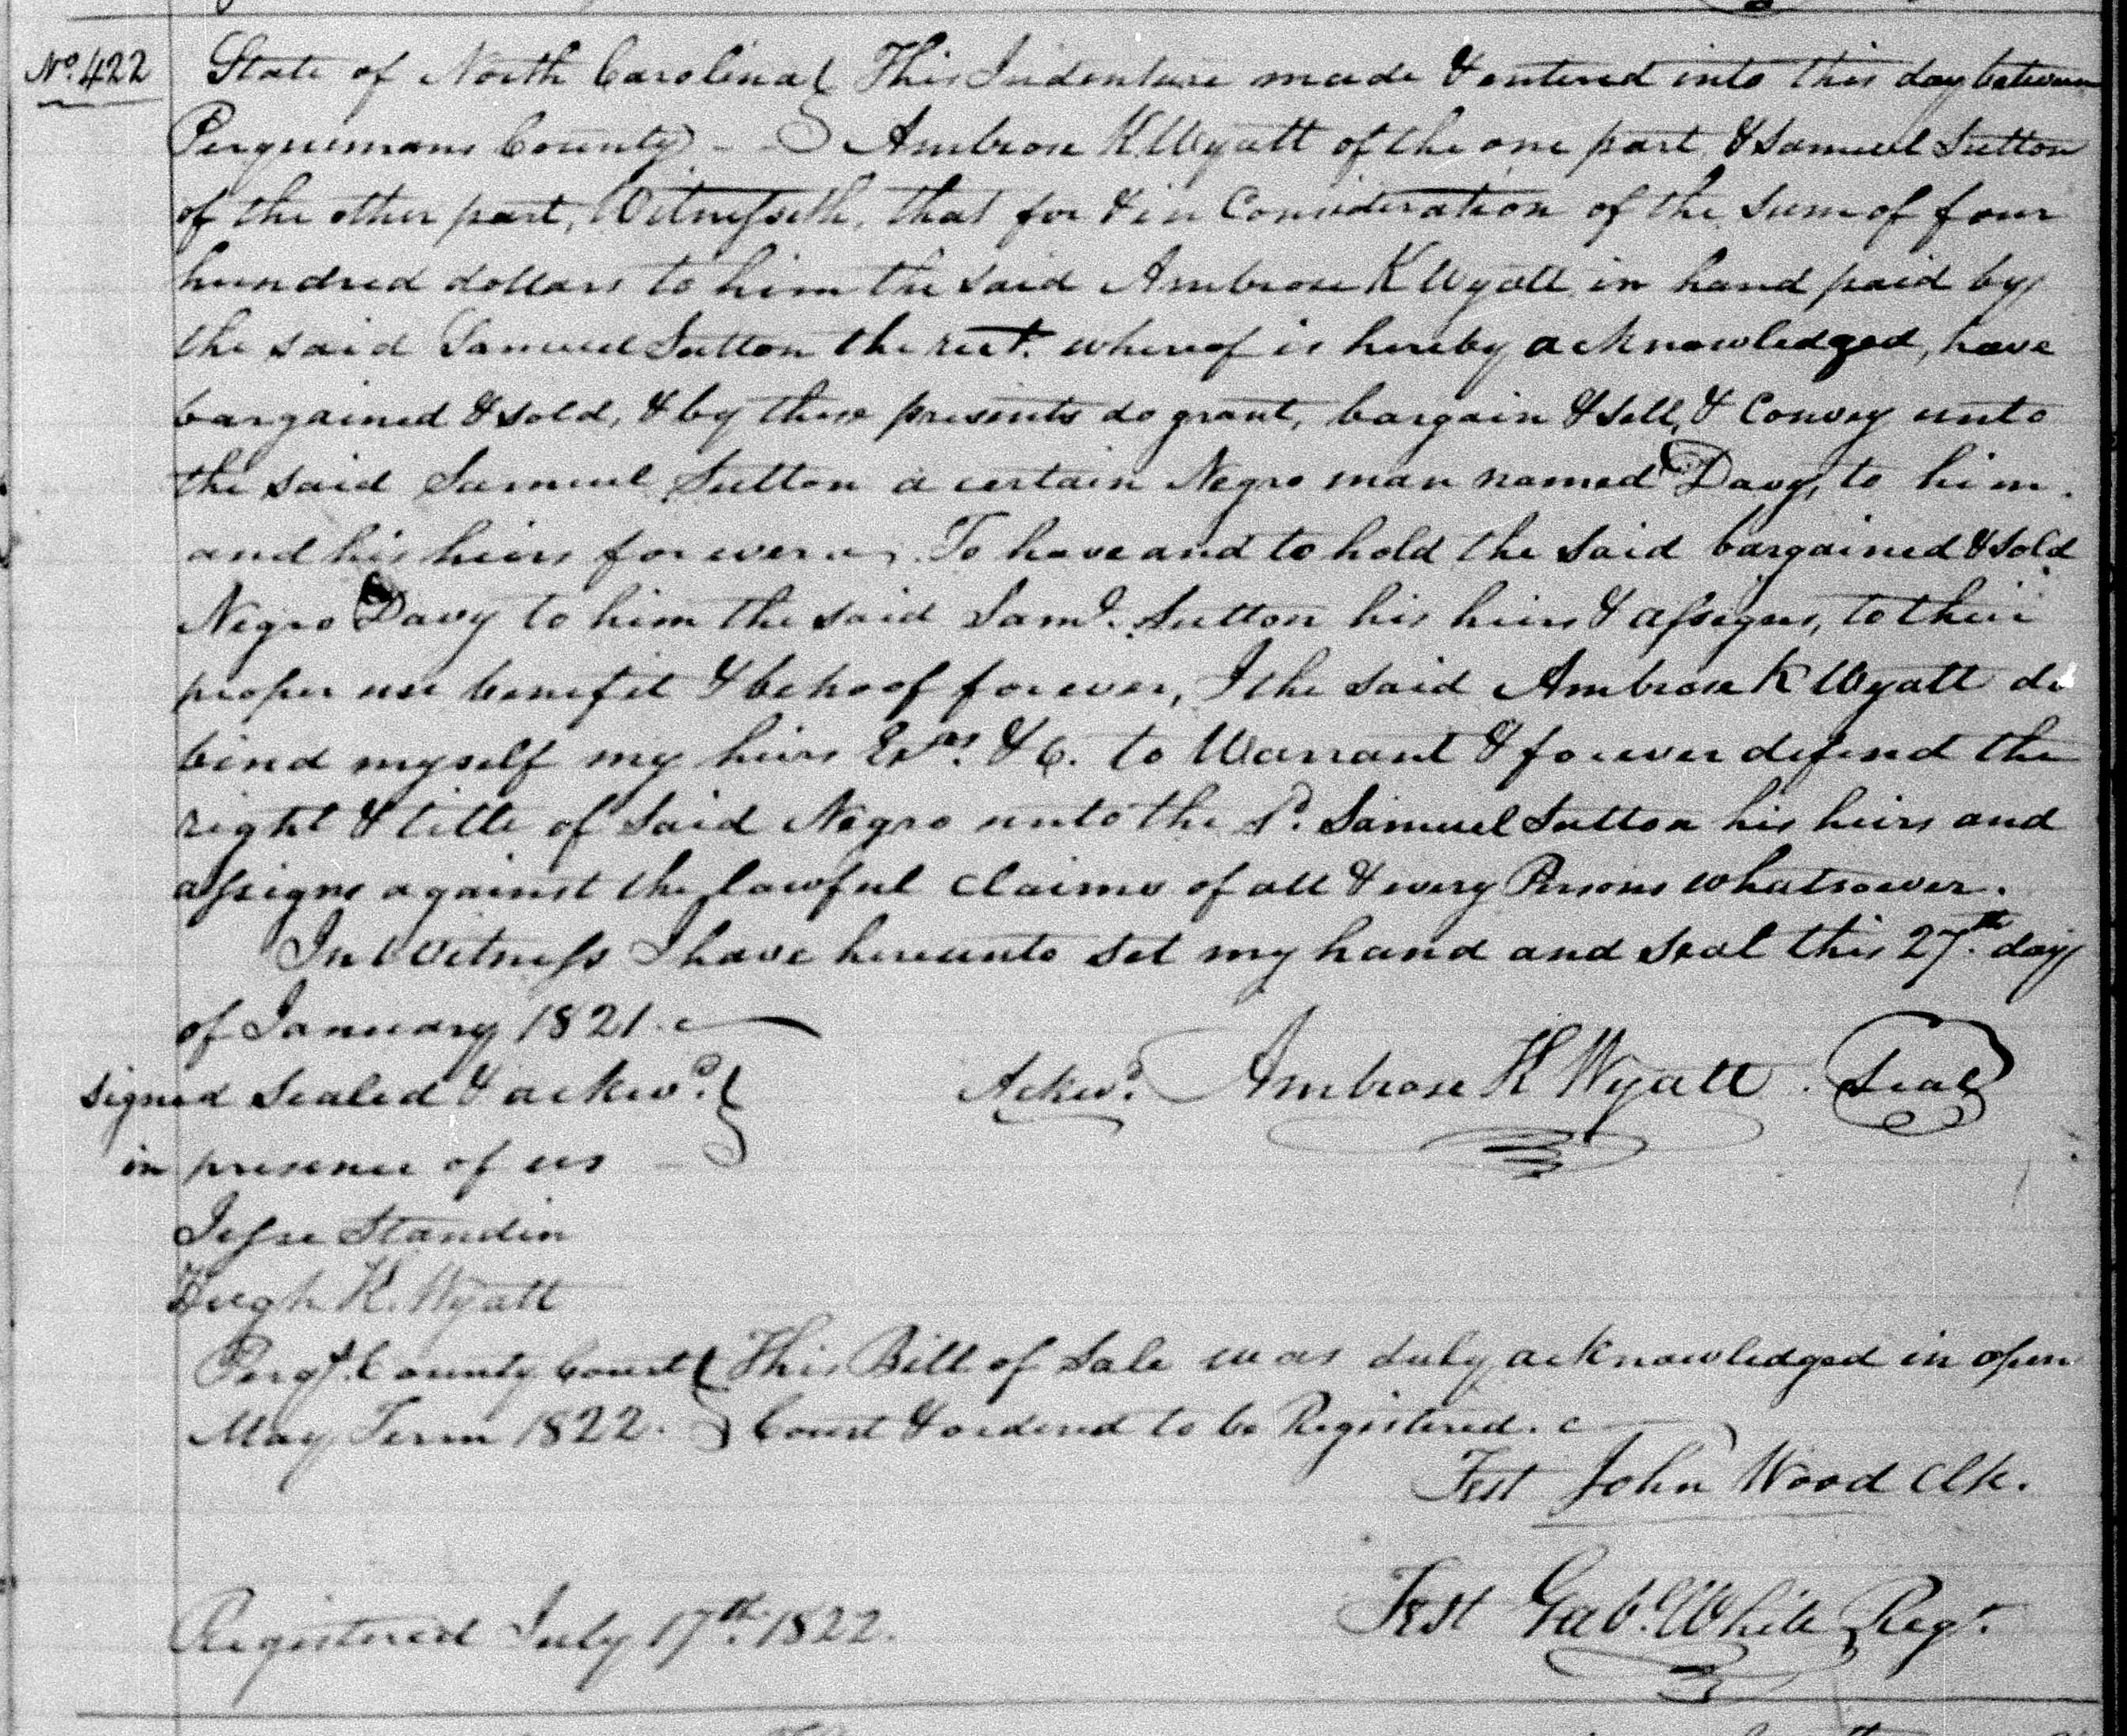 No. 422 State of North Carolina } This Indenture made & entered into this day between
Perquimans County } Ambrose K Wyatt of the one part, & Samuel Sutton
of the other part, Witnesseth, that for & in Consideration of the Sum of four
hundred dollars to him the said Ambrose K Wyatt in hand paid by
the said Samuel Sutton the rect. whereof is hereby acknowledged, have
bargained & sold, & by these presents do grant, bargain & sell, & Convey unto
the said Samuel Sutton a certain Negro man named Davy, to him
and his heirs forever. To have and to hold the said bargained & sold
Negro Davy to him the said Saml. Sutton his heirs & assigns, to their
proper use benefit & behoof forever, I the said Ambrose K Wyatt do
bind myself my heirs Exrs. &C. to Warrant & forever defend the
right & title of said Negro unto the Sd. Samuel Sutton his heirs and
assigns against the lawful claims of all & every Persons whatsoever.
In Witness I have hereunto set my hand and seal this 27th. day
of January 1821.
signed sealed & ackwd. } Ackwd. Ambrose K Wyatt Seal
in presence of us
Jesse Standin
Hugh K. Wyatt
Perqs. County Court } This Bill of Sale was duly acknowledged in open
May Term 1822. } Court & ordered to be Registered.
Test John Wood Clk.
Test Gab. White Regr.
Registered July 17th. 1822.